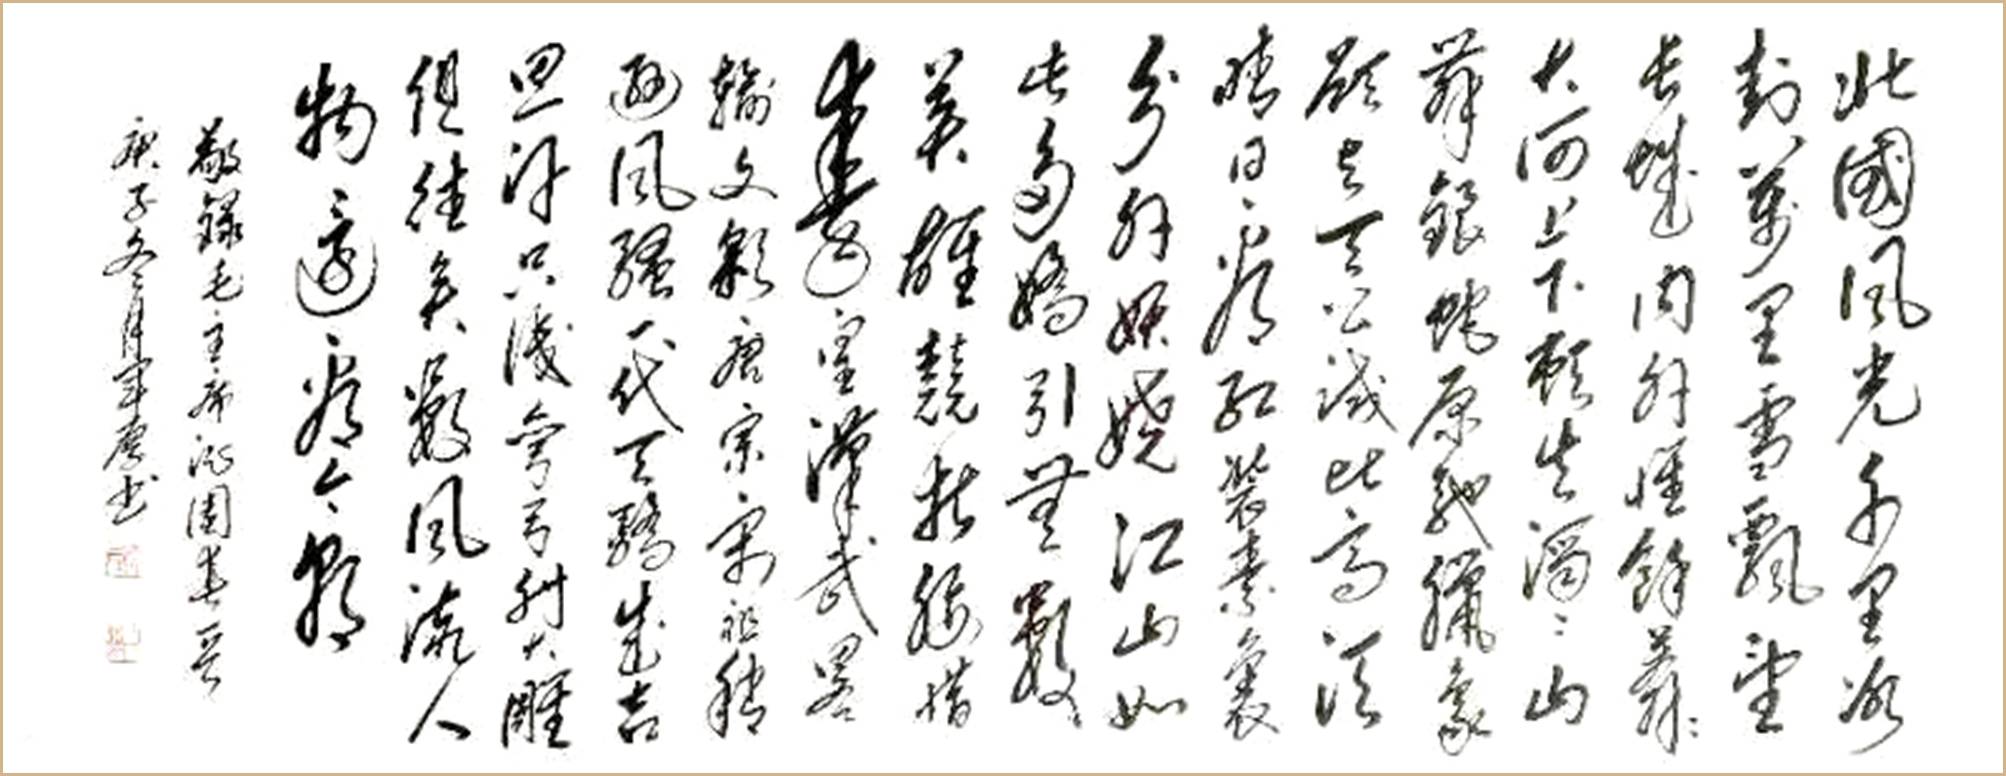 北國風光千里冰
封萬里雪飄望
長城内外惟餘莽々
大河上下頓失滔々山
舞銀蛇原馳臘象
欲與天公試比高須
晴日看紅裝素裹
分外妖嬈江山如
此多嬌引無數
英雄競折腰惜
秦皇漢武畧
輸文彩唐宗宋祖稍
遜風騷一代天驕成吉
思汗只識彎弓射大雕
俱往矣數風流人
物還看今朝
敬錄毛主席沁園春雪
庚子冬月軍書